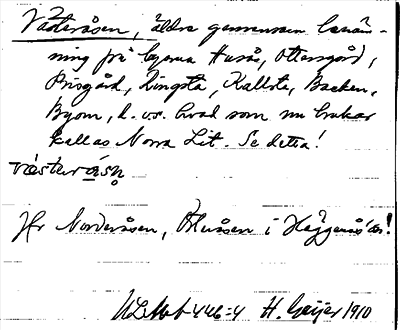 Västeråsen, äldre gemensam benäm-
ning på byarna Husås, Ottersgård,
Prisgård, Ringsta, Kallsta, Backen,
Byom, d. v. s. hvad som nu brukar
kallas Norra Lit. Se detta!
västerå̱sn̥
Jfr Norderåsen, Ölmåsen i Häggenås' sn!
ULMA 446:4 H. Geijer 1910